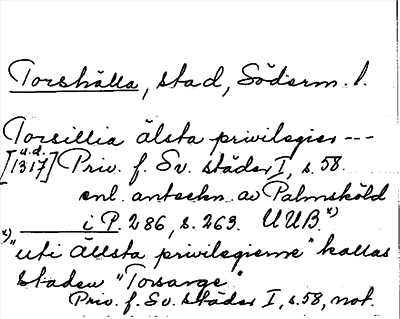 Torshälla, stad, Söderm. l.
Torsillia älsta privilegier ---
u.å.
[1317] Priv. f. Sv. städer I, s. 58.
enl. anteckn. av Palmsköld
i P. 286, s. 263. UUB. x)
x) "uti ällsta privilegierne" kallas
staden "Torsarge".
Priv. f. Sv. städer I, s. 58, not.